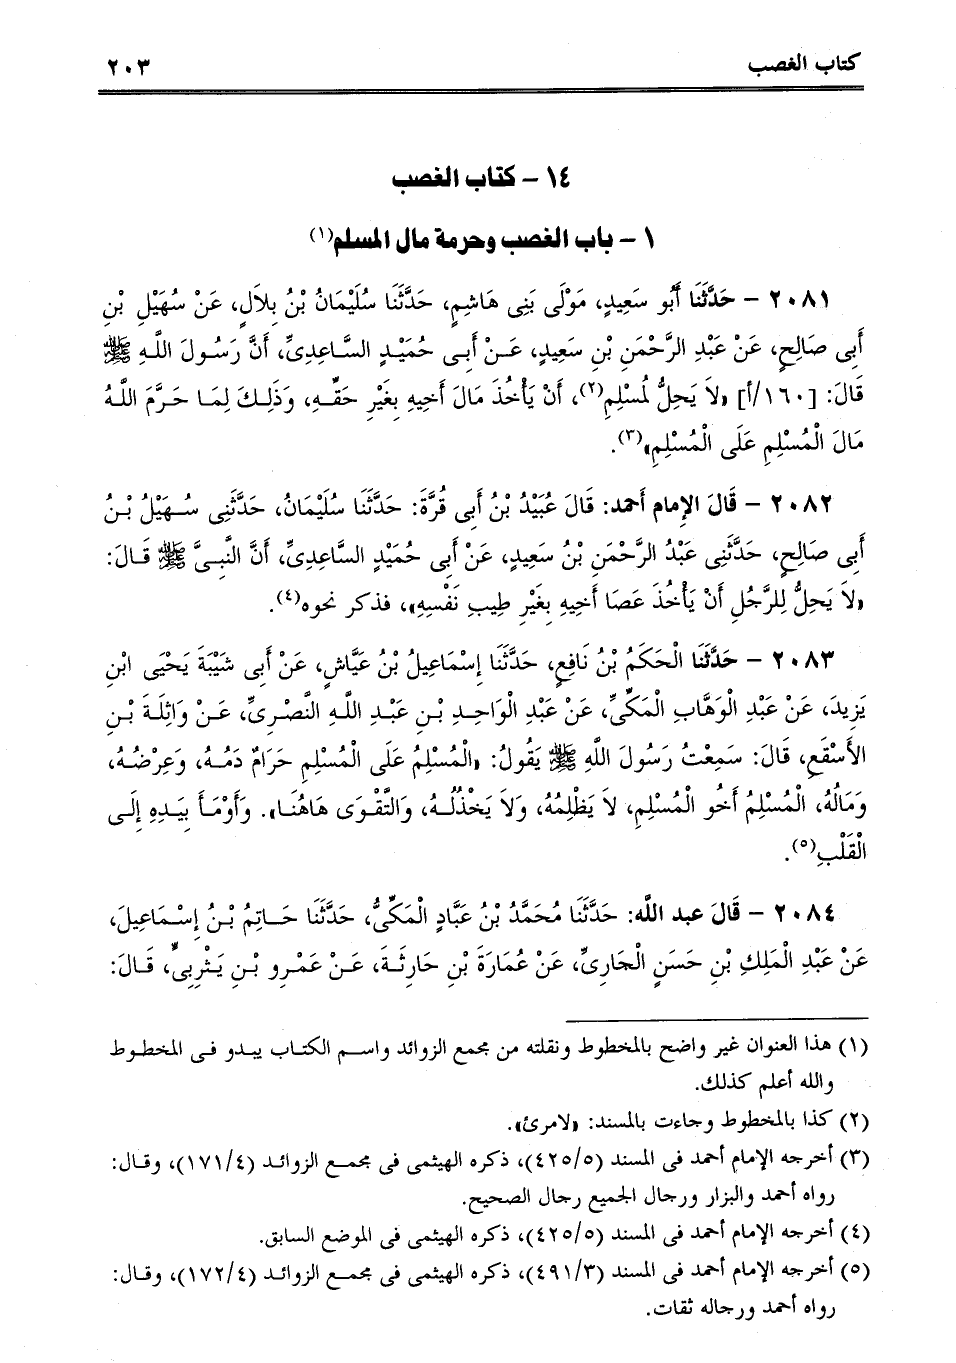 كتاب الغصب ٢٠٣
١٤ - كتاب الغصب
١ - باب الغصب وحرمة مال المسلم(١)
٢٠٨١ - حَدَّثَنَا أَبُو سَعِيدٍ، مَوْلَى بَنِى هَاشِمٍ، حَدَّثَنَا سُلَيْمَانُ بْنُ بِلاَلٍ، عَنْ سُهَيْلِ بْنِ
أَبِى صَالِحٍ، عَنْ عَبْدِ الرَّحْمَنِ بْنِ سَعِيدٍ، عَنْ أَبِى حُمَيْدٍ السَّاعِدِىِّ، أَنَّ رَسُولَ اللَّهِ ﷺ
قَالَ: [١٦٠/أ] «لاَ يَحِلُّ لمُسْلِمٍ(٢)، أَنْ يَأْخُذَ مَالَ أَخِيهِ بِغَيْرِ حَقِّهِ، وَذَلِكَ لِمَا حَرَّمَ اللَّهُ
مَالَ الْمُسْلِمِ عَلَى الْمُسْلِمِ»(٣).
٢٠٨٢ - قَالَ الإِمام أحمد: قَالَ عُبَيْدُ بْنُ أَبِى قُرَّةَ: حَدَّثَنَا سُلَيْمَانُ، حَدَّثَنِى سُهَيْلُ بْنُ
أَبِى صَالِحٍ، حَدَّثَنِى عَبْدُ الرَّحْمَنِ بْنُ سَعِيدٍ، عَنْ أَبِى حُمَيْدٍ السَّاعِدِىِّ، أَنَّ النَّبِىَّ ﷺ قَالَ:
«لاَ يَحِلُّ لِلرَّجُلِ أَنْ يَأْخُذَ عَصَا أَخِيهِ بِغَيْرِ طِيبِ نَفْسِهِ»، فذكر نحوه(٤).
٢٠٨٣ - حَدَّثَنَا الْحَكَمُ بْنُ نَافِعٍ، حَدَّثَنَا إِسْمَاعِيلُ بْنُ عَيَّاشٍ، عَنْ أَبِى شَيْبَةَ يَحْيَى ابْنِ
يَزِيدَ، عَنْ عَبْدِ الْوَهَّابِ الْمَكِّىِّ، عَنْ عَبْدِ الْوَاحِدِ بْنِ عَبْدِ اللَّهِ النَّصْرِىِّ، عَنْ وَاثِلَةَ بْنِ
الأَسْقَعِ، قَالَ: سَمِعْتُ رَسُولَ اللَّهِ ﷺ يَقُولُ: «الْمُسْلِمُ عَلَى الْمُسْلِمِ حَرَامٌ دَمُهُ، وَعِرْضُهُ،
وَمَالُهُ، الْمُسْلِمُ أَخُو الْمُسْلِمِ، لاَ يَظْلِمُهُ، وَلاَ يَخْذُلُهُ، وَالتَّقْوَى هَاهُنَا». وَأَوْمَأَ بِيَدِهِ إِلَى
الْقَلْبِ(٥).
٢٠٨٤ - قَالَ عبد اللَّه: حَدَّثَنَا مُحَمَّدُ بْنُ عَبَّادٍ الْمَكِّىُّ، حَدَّثَنَا حَاتِمُ بْنُ إِسْمَاعِيلَ،
عَنْ عَبْدِ الْمَلِكِ بْنِ حَسَنٍ الْجَارِىِّ، عَنْ عُمَارَةَ بْنِ حَارِثَةَ، عَنْ عَمْرِو بْنِ يَثْرِبِىٍّ، قَالَ:
(١) هذا العنوان غير واضح بالمخطوط ونقلته من مجمع الزوائد واسم الكتاب يبدو فى المخطوط
والله أعلم كذلك.
(٢) كذا بالمخطوط وجاءت بالمسند: «لامرئ».
(٣) أخرجه الإمام أحمد فى المسند (٤٢٥/٥)، ذكره الهيثمى فى مجمع الزوائد (١٧١/٤)، وقال:
رواه أحمد والبزار ورجال الجميع رجال الصحيح.
(٤) أخرجه الإمام أحمد فى المسند (٤٢٥/٥)، ذكره الهيثمى فى الموضع السابق.
(٥) أخرجه الإمام أحمد فى المسند (٤٩١/٣)، ذكره الهيثمى فى مجمع الزوائد (١٧٢/٤)، وقال:
رواه أحمد ورجاله ثقات.